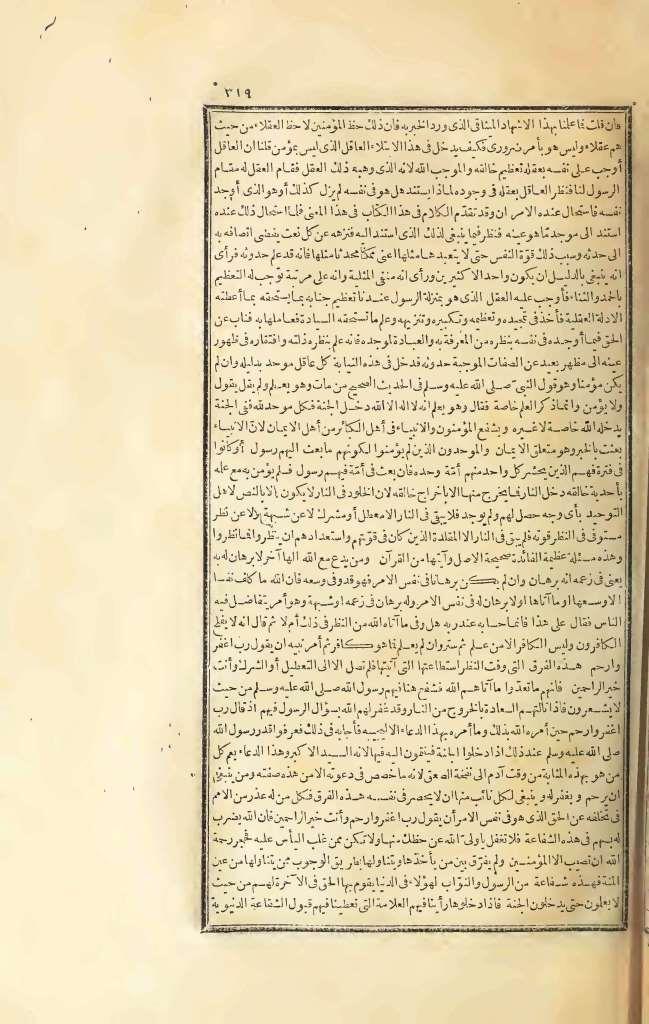 ٣١٩
فان قلت فما علنا بهذا الاشهاد المثاقى الذى ورد الخبر به فان ذلك حظ المؤمنين لا حظ العقلاء من حيث
هم عقلاء وليس هو بأمر ضرورى فكيف يدخل فى هذا الابتلاء العاقل الذى ليس بمؤمن قلنا ان العاقل
أوجب على نفسه بعقله تعظيم خالقه والموجب الله لانه الذى وهبه ذلك العقل فقام العقل له مقام
الرسول لنا فنظر العاقل بعقله فى وجوده لماذا يستند هل هو فى نفسه لم يزل كذلك أو هو الذى أوجد
نفسه فاستحال عنده الامر ان وقد تقدم الكلام فى هذا الكتاب فى هذا المعنى فلما استحال ذلك عنده
استند الى موجد ما هو عينه فنظر فيما ينبغى لذلك الذى استند اليه فنزهه عن كل نعت يفضى اتصافه به
الى حدثه وسبب ذلك قوة النفس حتى لا يتعبدها مثلها اعنى ممكنا محدثا مثلها فانه قد علم حدوثه فرأى
انه ينبغى بالدليل ان يكون واحدا لا كثيرين ورأى انه منفى المثلية وانه على مرتبة توجب له التعظيم
بالحمد والثناء فأوجب عليه العقل الذى هو بمنزلة الرسول عندنا تعظيم جنابه بما يستحقه بما أعطته
الادلة العقلية فأخذ فى تمجيده وتعظيمه وتكبيره وتنزيهه وعلم ما تستحقه السيادة فعاملها به فناب عن
الحق فيما أوجده فى نفسه بنظره من المعرفة به والعبادة لموجده فانه علم بنظره ذلته وافتقاره فى ظهور
عينه الى مظهر بعيد عن الصفات الموجبة حدوثه فدخل فى هذه النيابة كل عاقل موحد بدليله وان لم
يكن مؤمنا وهو قول النبى صلى الله عليه وسلم فى الحديث الصحيح من مات وهو يعلم ولم يقل يقول
ولا يؤمن وانما ذكر العلم خاصة فقال وهو يعلم انه لا اله الا الله دخل الجنة فكل موحد لله فى الجنة
يدخله الله خاصة لا غيره ويشفع المؤمنون والانبياء فى أهل الكبائر من أهل الايمان لان الانبياء
بعثت بالخبر وهو متعلق الايمان والموحدون الذين لم يؤمنوا لكونهم ما بعث اليهم رسول أو كانوا
فى فترة فهم الذين يحشر كل واحد منهم أمة وحده فان بعث فى أمة فيهم رسول فلم يؤمن به مع علمه
بأحدية خالقه دخل النار فما يخرج منها الا باخراج خالقه لان الخلود فى النار لا يكون الا بالنص لاهل
التوحيد بأى وجه حصل لهم ولم يوجد فلا يبقى فى النار الا معطل أو مشرك لا عن شبهة ولا عن نظر
مستوفى فى النظر قوته فلم يبق فى النار الا المقلدة الذين كان فى قوتهم واستعدادهم ان ينظروا فما نظروا
وهذه مسئلة عظيمة الفائدة صحيحة الاصل وآيتها من القرآن ومن يدع مع الله الها آخر لا برهان له به
يعنى فى زعمه انه برهان وان لم يكن برهانا فى نفس الامر فهو قد وفى وسعه فان الله ما كلف نفسا
الا وسعها أو ما آتاها او لا برهان له فى نفس الامر وله برهان فى زعمه او شبهة وهو أمر يتفاضل فيه
الناس فقال على هذا فانما حسابه عند ربه هل وفى ما آتاه الله من النظر فى ذلك أم لا ثم قال انه لا يفلح
الكافرون وليس الكافر الا من علم ثم ستر وان لم يعلم فما هو كافر ثم أمر نبيه ان يقول رب اغفر
وارحم هذه الفرق التى وفت النظر استطاعتها التى آتيتها فلم تصل الا الى التعطيل أو الشرك وأنت
خير الراحمين فانهم ما تعدوا ما آتاهم الله فشفع هنا فيهم رسول الله صلى الله عليه وسلم من حيث
لا يشعرون فاذا نالتهم السعادة بالخروج من النار وقد غفر لهم الله بسؤال الرسول فيهم اذ قال رب
اغفر وارحم حين أمره الله بذلك وما أمره بهذا الدعاء الا ليجيبه فأجابه فى ذلك فعرفوا قدر رسول الله
صلى الله عليه وسلم عند ذلك اذا دخلوا الجنة فينتون اليه فيها لانه السيد الاكبر وهذا الدعاء يعم كل
من هو بهذه المثابة من وقت آدم الى نفخة الصعق لانه ما خصص فى دعوته الا من هذه صفته ومن ينبغى
ان يرحم ويغفر له وينبغى لكل نائب منها ان لا يحصر فى نفسه هذه الفرق فكل من له عذر من الامم
فى تخلفه عن الحق الذى هو فى نفس الامر أن يقول رب اغفر وارحم وأنت خير الراحمين فان الله يضرب
له بسهم فى هذه الشفاعة فلا تغفل يا ولى الله عن حظك منها ولا تكن ممن غلب اليأس عليه فحجر رحمة
الله ان تصيب الا المؤمنين ولم يفرق بين من يأخذها ويتناولها بطريق الوجوب ممن يتناولها من عين
المنة فهذه شفاعة من الرسول والنواب لهؤلاء فى الدنيا يقوم بها الحق فى الآخرة لهم من حيث
لا يعلمون حتى يدخلون الجنة فاذا دخلوها رأينا فيهم العلامة التى تعطينا فيهم قبول الشفاعة الدنيوية